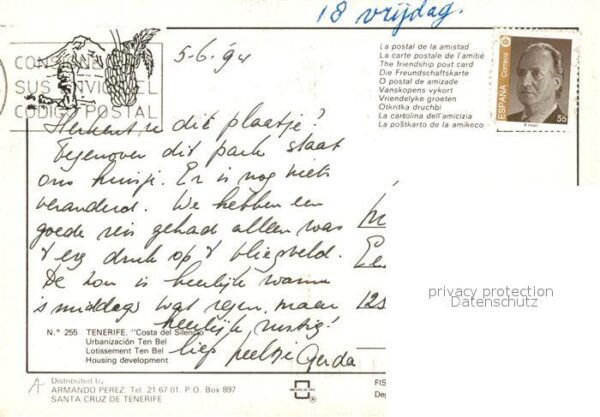 18 vrijdag.
5-6-'94
CONSIGNE
SUS ENVIOS EL
CODIGO POSTAL
La postal de la amistad
La carte postale de l'amitié
The friendship post card
Die Freundschaftskarte
O postal de amizade
Vanskopens vykort
Vriendelyke groeten
Otkritka druchbi
La cartolina dell'amicizia
La poŝtkarto de la amikeco
ESPAÑA Correos
55
Herkent je dit plaatje?
Tegenover dit park staat
ons huisje. Er is nog niets
veranderd. We hebben een
goede reis gehad alleen was
't erg druk op 't vliegveld.
De zon is heerlijk warm
's middags wat regen, maar
heerlijk rustig!
liefs Gerda
125
privacy protection
Datenschutz
N.º 255 TENERIFE. "Costa del Silencio"
Urbanización Ten Bel
Lotissement Ten Bel
Housing development
Distributed by
ARMANDO PEREZ. Tel. 21 67 01. P.O. Box 897
SANTA CRUZ DE TENERIFE
FIS
Dep